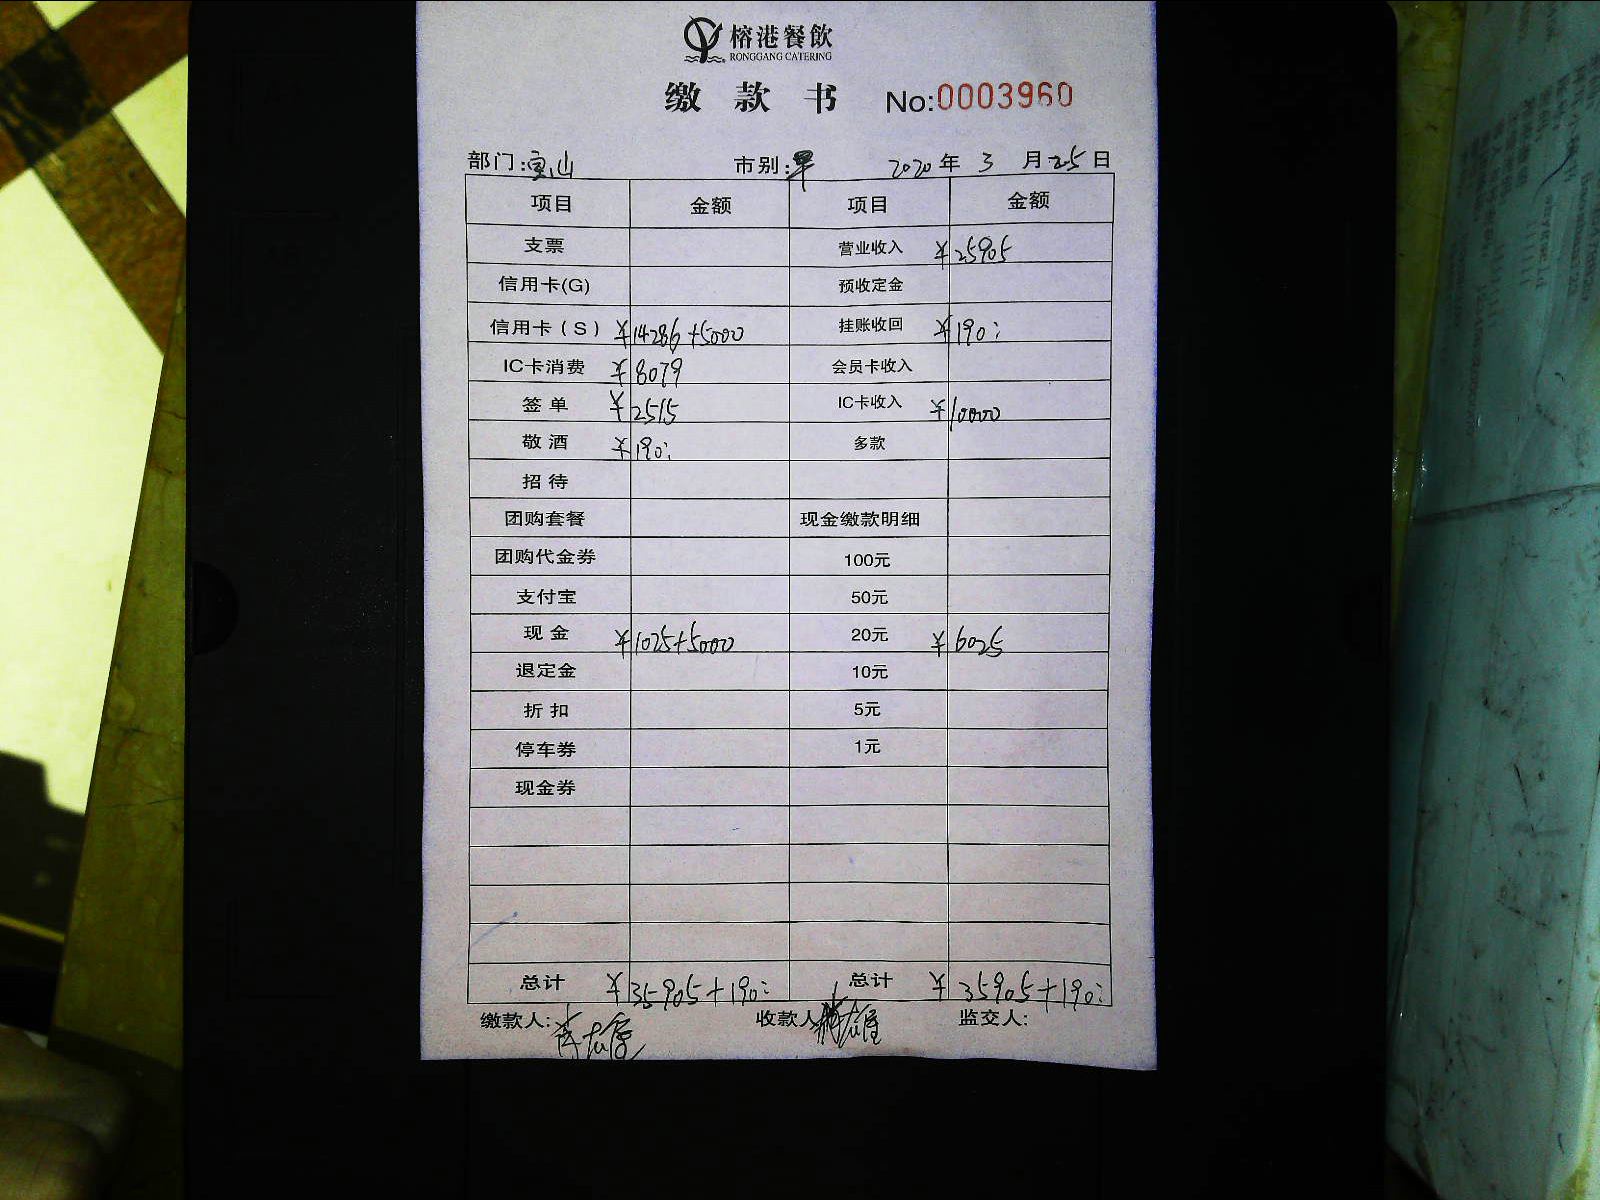 榕港餐飲
RONGGANG CATERING
缴款书 No:0003960
部门:宝山 市别:早 2020年3月25日
项目 金额 项目 金额
支票 营业收入 ¥25905
信用卡(G) 预收定金
信用卡(S) ¥14286+5000 挂账收回 ¥190:
IC卡消费 ¥8079 会员卡收入
签单 ¥2515 IC卡收入 ¥10000
敬酒 ¥190: 多款
招待
团购套餐 现金缴款明细
团购代金券 100元
支付宝 50元
现金 ¥1025+5000 20元 ¥6025
退定金 10元
折扣 5元
停车券 1元
现金券
总计 ¥35905+190: 总计 ¥35905+190:
缴款人: 收款人 监交人: